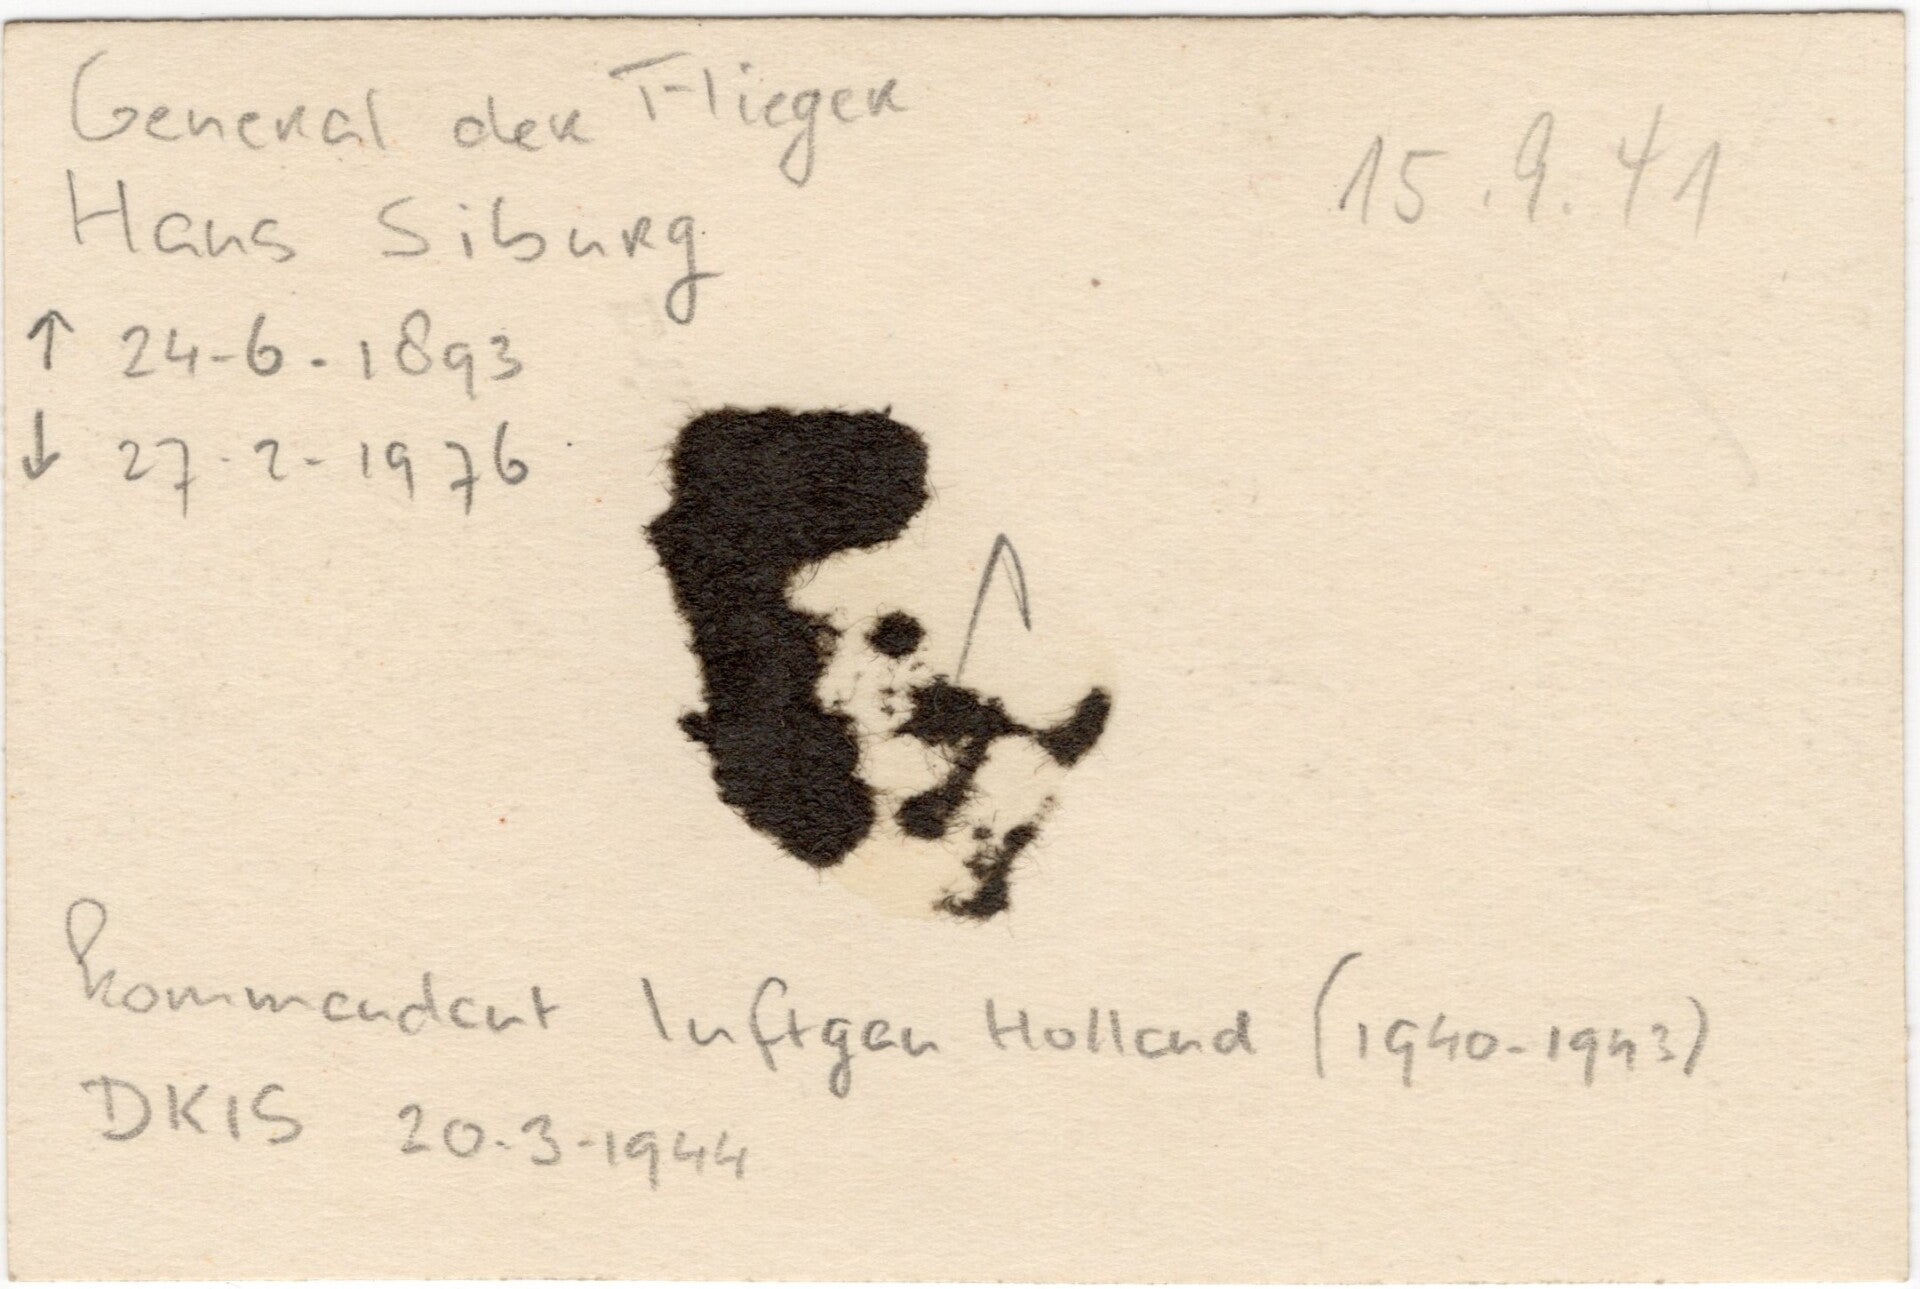 General der Flieger
15.9.41
Hans Siburg
↑ 24-6-1893
↓ 27-2-1976
Kommandant luftgau Holland (1940-1943)
DKIS 20-3-1944